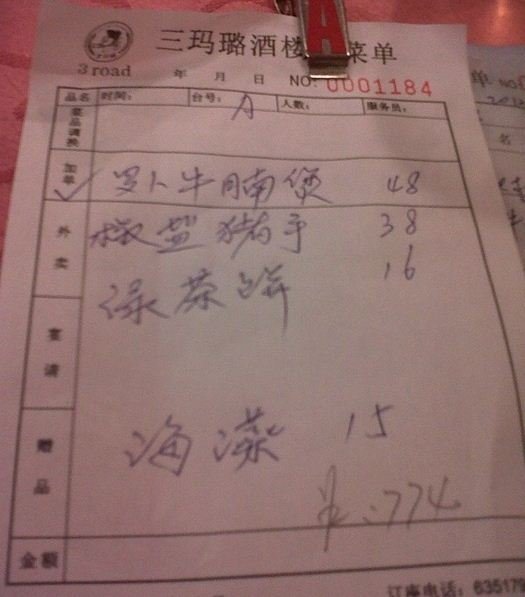 三玛璐酒楼 菜单
3 road 年 月 日 NO: 0001184
品名 时间: 台号: A 人数: 服务员:
菜品调换
加单 罗卜牛腩煲 48
外卖 椒盐猪手 38
绿茶饼 16
宴请
赠品 海藻 15
774
金额
订座电话: 635179
单 NO
名